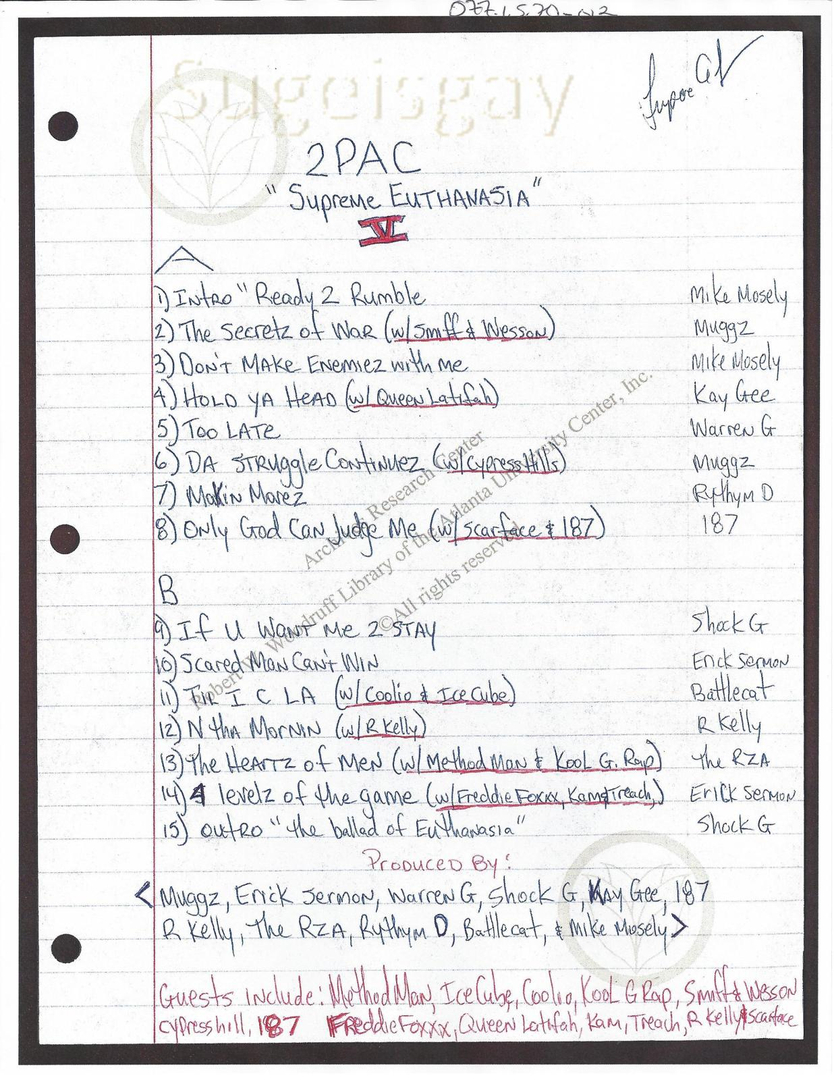 077.1.5.70-012
Sugeisgay
2PAC
"Supreme EUTHANASIA"
V
A
1) Intro "Ready 2 Rumble Mike Mosely
2) The Secretz of War (w/Smiff & Wesson) Muggz
3) Don't Make Enemiez with me Mike Mosely
4) HOLD YA HEAD (w/ Queen Latifah) Kay Gee
5) TOO LATE Warren G
6) DA STRUGGLE CONTINUEZ (w/cypress Hills) Muggz
7) Makin Movez Rythym D
8) Only God Can Judge Me (w/ Scarface & 187) 187
B
9) If U Want Me 2 STAY Shock G
10) Scared Man Can't Win Erick Sermon
11) Til I C LA (w/ Coolio & Ice Cube) Battlecat
12) N tha Mornin (w/ R Kelly) R Kelly
13) The Heartz of Men (w/ Method Man & Kool G. Rap) The RZA
14) 4 levelz of the game (w/Freddie Foxxx, Kam & Treach,) Erick Sermon
15) outro "the ballad of Euthanasia" Shock G
Produced By:
< Muggz, Erick Sermon, Warren G, Shock G, Kay Gee, 187
R Kelly, The RZA, Rythym D, Battlecat, & Mike Mosely >
Guests include: Method Man, Ice Cube, Coolio, Kool G Rap, Smiff & Wesson
cypress hill, 187 Freddie Foxxx, Queen Latifah, Kam, Treach, R Kelly & Scarface
Archives Research Center
Robert W. Woodruff Library of the Atlanta University Center, Inc.
©All rights reserved